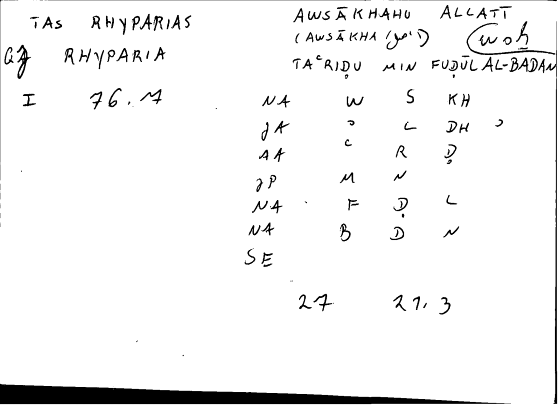 TAS RHYPARIAS
GF RHYPARIA
I 76.17
AWSĀKHAHU ALLATĪ
(AWSĀKHA
woh
TAʿRIḌU MIN FUḌŪL AL-BADAN
NA W S KH
JA ʾ L DH ʾ
AA ʿ R Ḍ
JP M N
NA F Ḍ L
NA B D N
SE
27 21.3